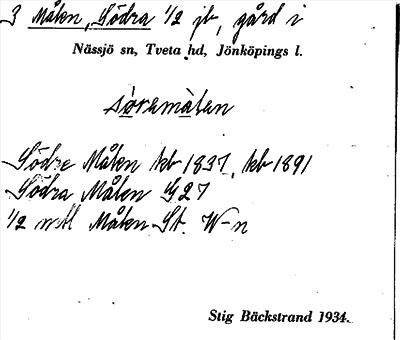 3 Målen, Södra 1/2 jb, gård i
Nässjö sn, Tveta hd, Jönköpings l.
söramålan
Södre Målen kb 1837, kb 1891
Södra Målen G 27
1/2 mtl Målen St. W-n
Stig Bäckstrand 1934.